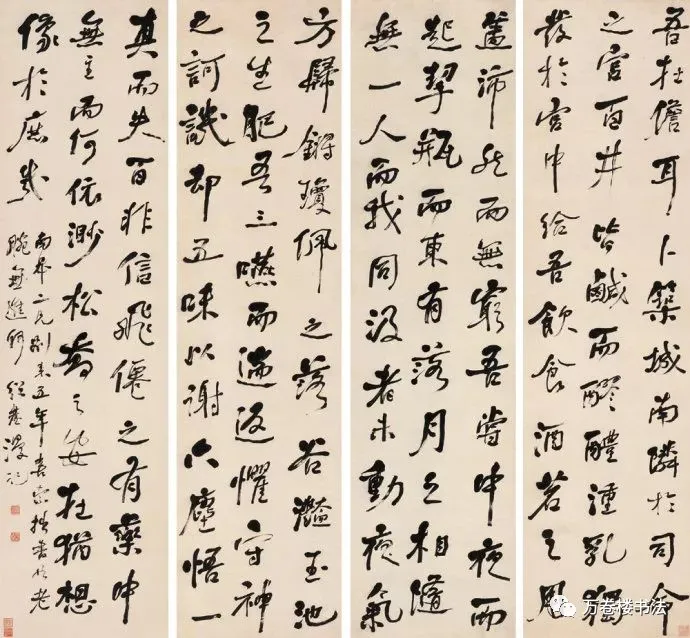 吾在儋耳卜築城南隣於司命
之宮百井皆鹹而醪醴湩乳獨
發於宮中給吾飲食酒茗之用
蓋沛然而無窮吾嘗中夜而
起挈瓶而東有落月之相隨
無一人而我同汲者未動夜氣
方歸鏘瓊佩之落谷灧玉池
之生肥吾三嚥而遄返懼守神
之訶譏却五味以謝六塵悟一
真而失百非信飛僊之有藥中
無主而何依渺松喬之安在猶想
像於庶幾
南屏二兄別來五年喜索拙書
腕無進
万卷楼书法